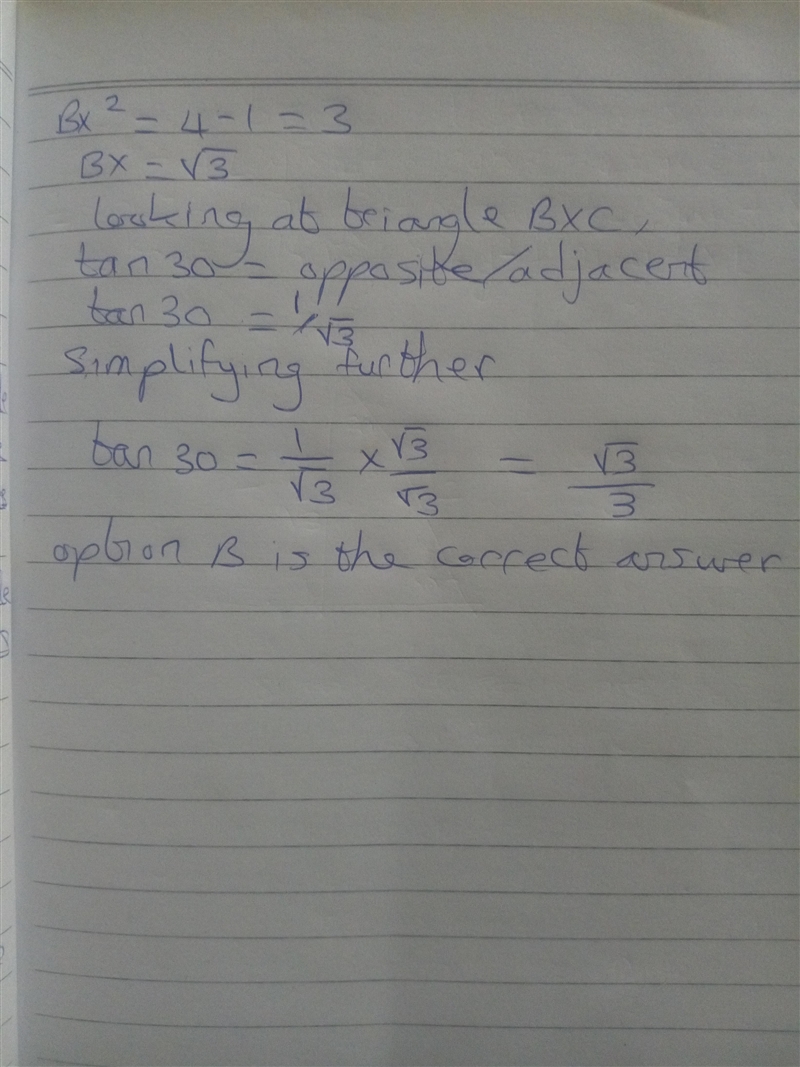 Bx² = 4 - 1 = 3
BX = √3
looking at triangle BXC,
tan 30 = opposite/adjacent
tan 30 = 1/√3
Simplifying further
tan 30 = 1/√3 × √3/√3 = √3/3
option B is the correct answer